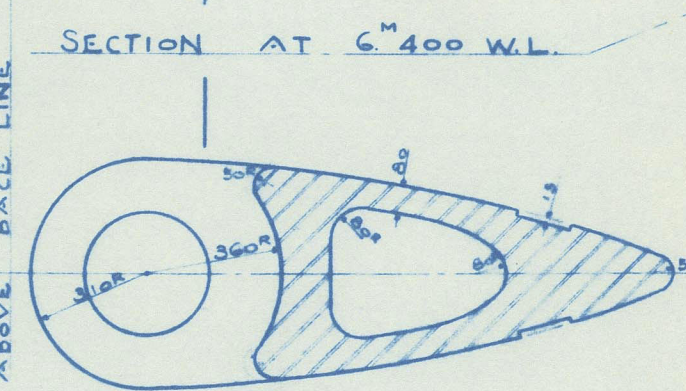 SECTION AT 6.M400 W.L.
ABOVE BASE LINE
50R
80
15
360R
80R
80
310R
5